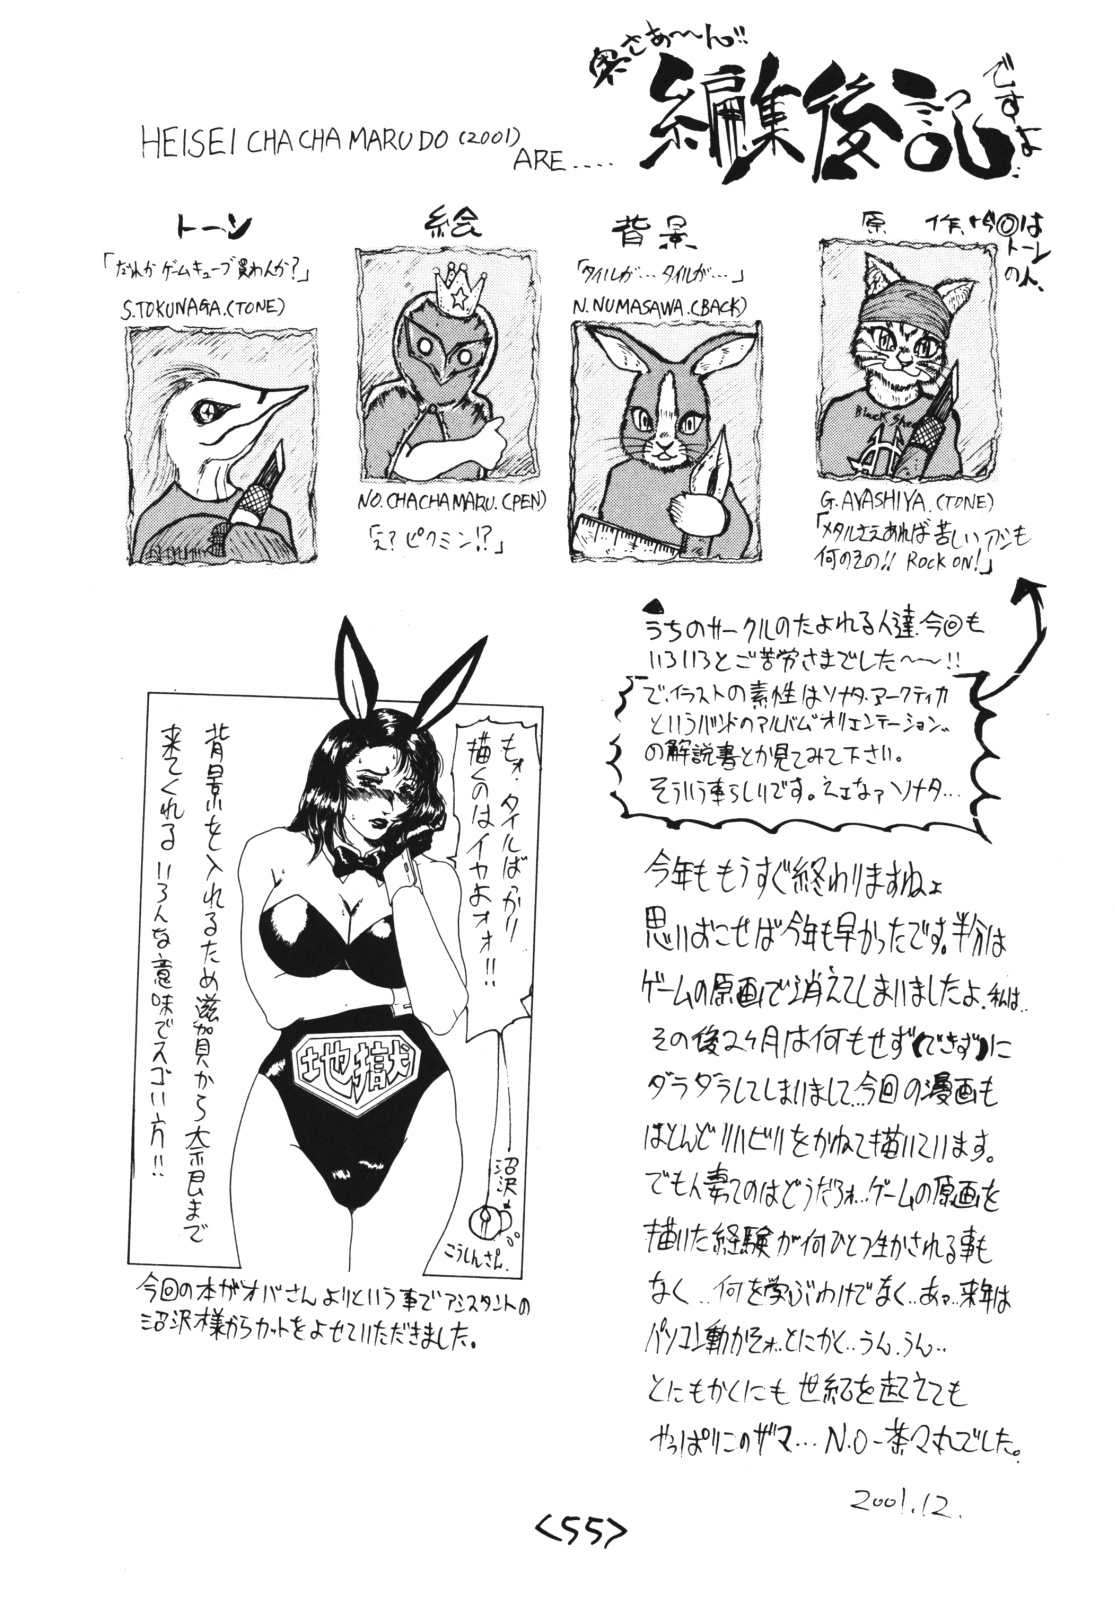 奥さぁ〜〜ん!!
編集後記
ですよ…
HEISEI CHACHAMARUDO (2001)
ARE....
トーン
「だれかゲームキューブ買わんか?」
S.TOKUNAGA.(TONE)
絵
NO.CHACHAMARU.(PEN)
「え?ピクミン!?」
背景
「タイルが…タイルが…」
N.NUMASAWA.(BACK)
原作
今回は
トーン
の人、
Black She
G.AYASHIYA.(TONE)
「メタルさえあれば苦しいアシも
何のその!! ROCK ON!」
うちのサークルのたよれる人達、今回も
いろいろとご苦労さまでした〜〜!!
で、イラストの素性はソナタ・アークティカ
というバンドのアルバム“オリエンテーション”
の解説書とか見てみて下さい。
そういう事らしいです。ええなァソナタ…
もォ、タイルばかり
描くのはイヤよォォ!!
背景を入れるため滋賀から奈良まで
来てくれるいろんな意味でスゴい方!!
地獄
沼沢
こうしんさん.
今回の本がオバさんよりという事でアシスタントの
沼沢様からカットをよせていただきました。
今年ももうすぐ終わりますねょ
思いおこせば今年も早かったです。半分は
ゲームの原画で消えてしまいましたよ、私は…
その後2ヶ月は何もせず(できず)に
ダラダラしてしまいまして…今回の漫画も
ほとんどリハビリをかねて描いています。
でも人妻てのはどうだろォ…ゲームの原画を
描いた経験が何ひとつ生かされる事も
なく…何を学ぶわけでなく…あァ…来年は
パソコン動かそォ…とにかく…うん、うん…
とにもかくにも世紀を越えても
やっぱりこのザマ… N.O-茶々丸でした。
2001.12.
<55>